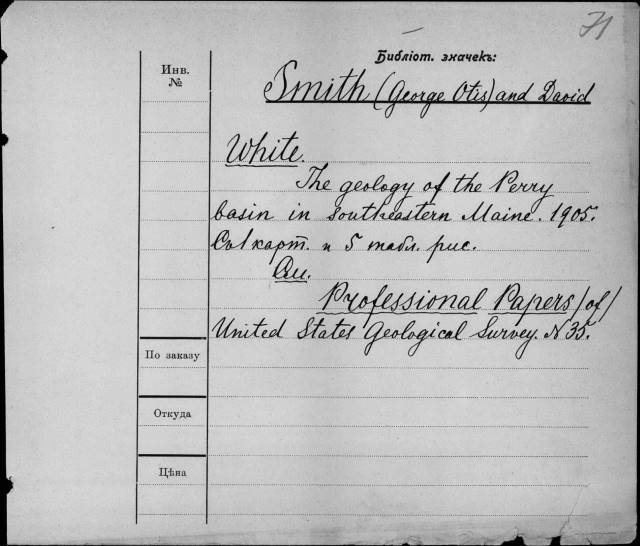 71
Библіот. значекъ:
Инв.
№
Smith (George Otis) and David
White.
The geology of the Perry
basin in southeastern Maine. 1905.
Съ 1 карт. и 5 табл. рис.
См.
Professional Papers /of/
United States Geological Survey. N 35.
По заказу
Откуда
Цѣна